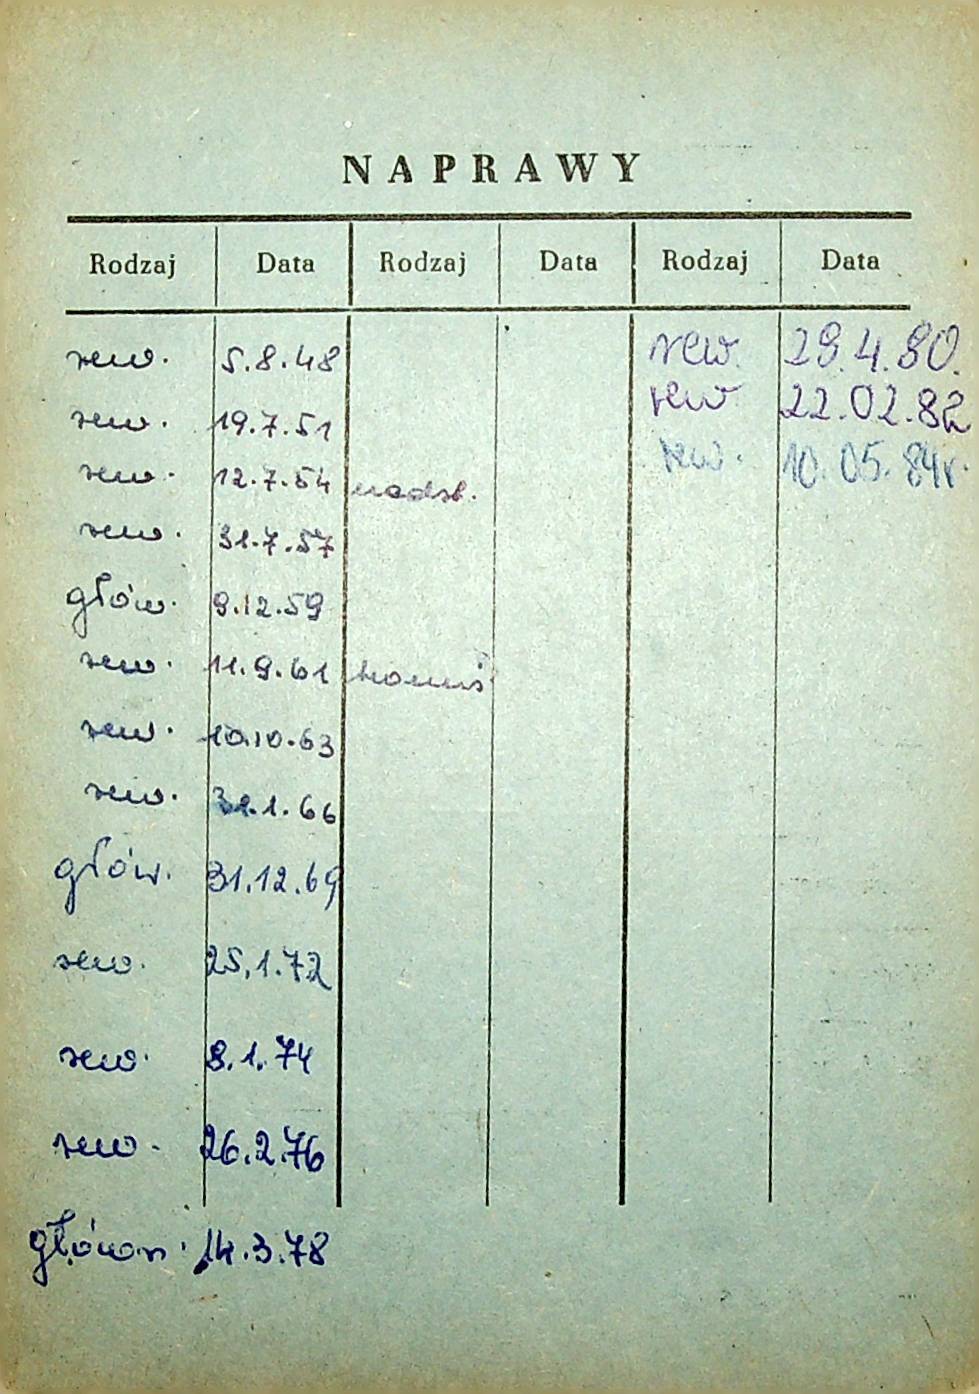 NAPRAWY
Rodzaj Data Rodzaj Data Rodzaj Data
rew. 5.8.48 rew. 29.4.80.
rew. 19.7.51 rew 22.02.82
rew. 12.7.54 nadzl. rew. 10.05.84r.
rew. 31.7.57
głów. 9.12.59
rew. 11.9.61
rew. 10.10.63
rew. 31.1.66
głów. 31.12.69
rew. 25.1.72
rew. 8.1.74
rew. 26.2.76
główn. 14.3.78